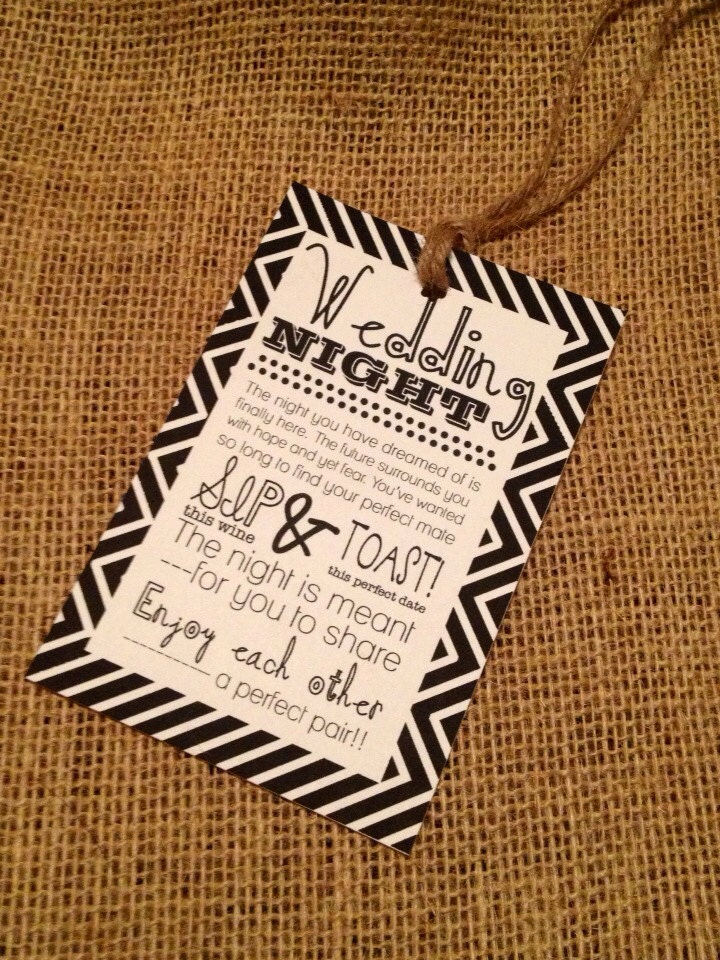 Wedding
NIGHT
The night you have dreamed of is
finally here. The future surrounds you
with hope and yet fear. You've wanted
so long to find your perfect mate
SIP & TOAST!
this wine this perfect date
The night is meant
---for you to share
Enjoy each other
---------- a perfect pair!!